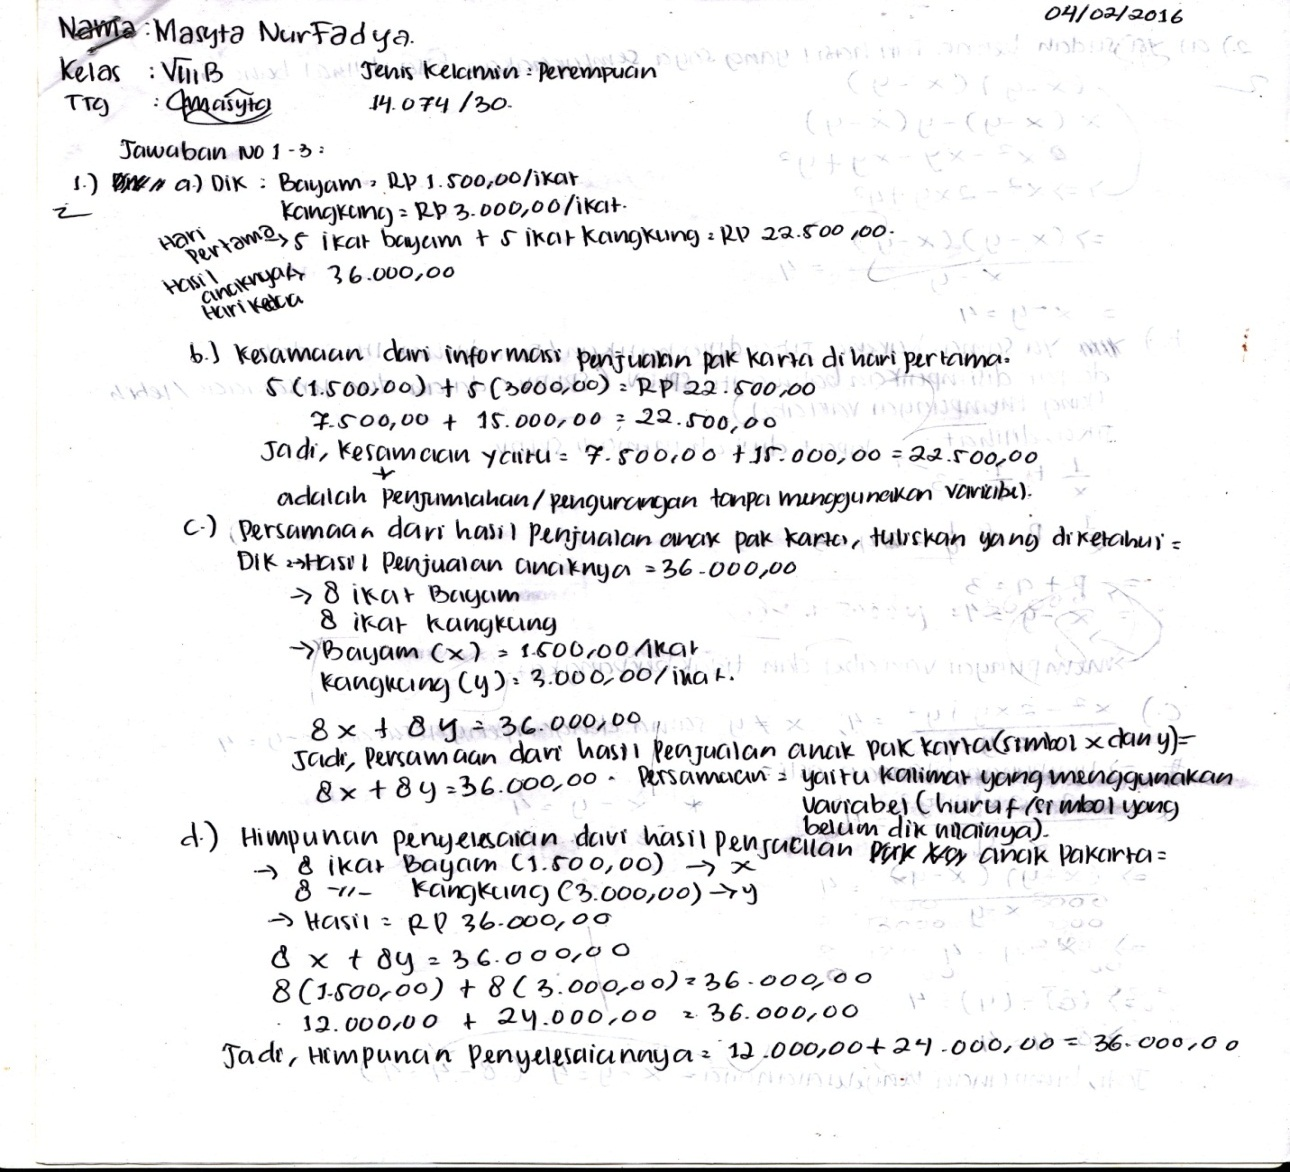 04/02/2016
Nama : Masyta NurFadya.
Kelas : VIII B Jenis Kelamin : Perempuan
TTg : Masyta 14.074/30.
Jawaban No 1-3 :
1.) a.) Dik : Bayam = RP 1.500,00/ikat
Kangkung = RP 3.000,00/ikat.
Hari Pertama → 5 ikat bayam + 5 ikat Kangkung = RP 22.500,00.
Hasil anaknya Hari kedua → 36.000,00
b.) Kesamaan dari informasi Penjualan pak karta di hari pertama.
5 (1.500,00) + 5 (3000,00) = RP 22.500,00
7.500,00 + 15.000,00 = 22.500,00
Jadi, Kesamaan yaitu = 7.500,00 + 15.000,00 = 22.500,00
adalah penjumlahan/pengurangan tanpa menggunakan variabel.
c.) Persamaan dari hasil Penjualan anak pak karta, tuliskan yang diketahui =
Dik → Hasil Penjualan anaknya = 36.000,00
→ 8 ikat Bayam
8 ikat kangkung
→ Bayam (x) = 1.500,00/ikat
Kangkung (y) = 3.000,00/ikat.
8x + 8y = 36.000,00
Jadi, Persamaan dari hasil Penjualan anak pak karta (simbol x dan y) =
8x + 8y = 36.000,00. Persamaan = yaitu kalimat yang menggunakan
variabel (huruf/simbol yang
belum dik nilainya).
d.) Himpunan penyelesaian dari hasil Penjualan anak pakarta =
→ 8 ikat Bayam (1.500,00) → x
8 -"- Kangkung (3.000,00) → y
→ Hasil = RP 36.000,00
8x + 8y = 36.000,00
8 (1.500,00) + 8 (3.000,00) = 36.000,00
12.000,00 + 24.000,00 = 36.000,00
Jadi, Himpunan Penyelesaiannya = 12.000,00 + 24.000,00 = 36.000,00